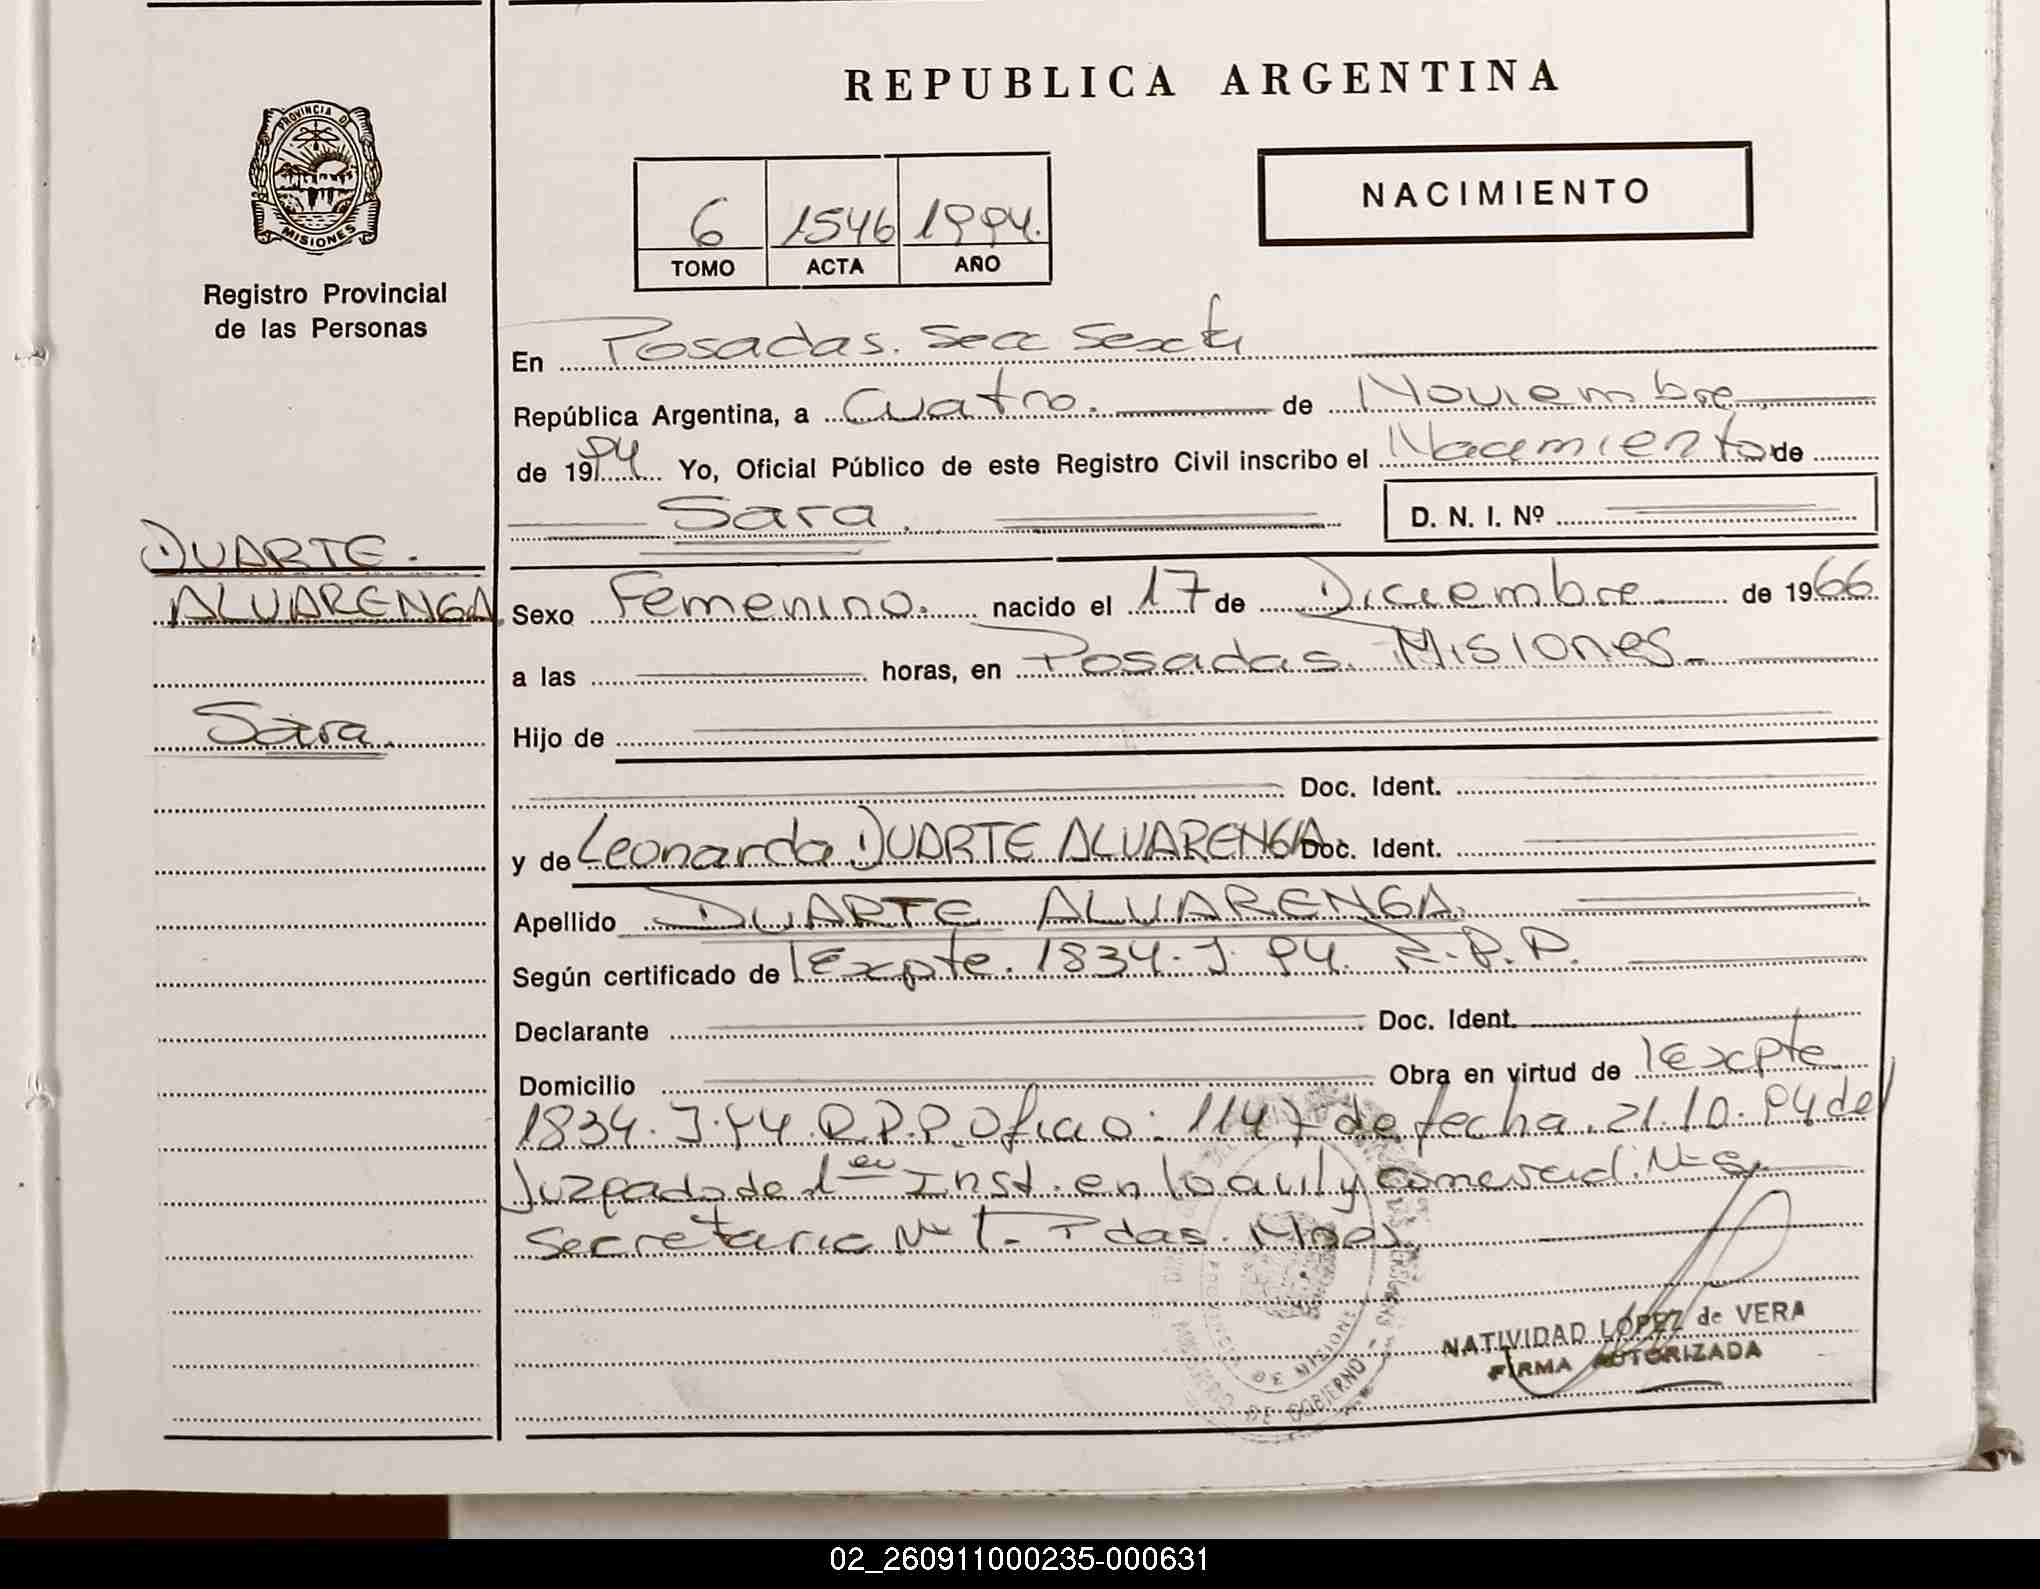 REPUBLICA ARGENTINA
PROVINCIA DE
MISIONES
Registro Provincial
de las Personas
NACIMIENTO
6 1546 1994.
TOMO ACTA AÑO
En Posadas. Secc Sexta
República Argentina, a Cuatro. de Noviembre
de 1994 Yo, Oficial Público de este Registro Civil inscribo el Nacimiento de
Sara. D. N. I. Nº
DUARTE.
ALVARENGA
Sara.
Sexo Femenino. nacido el 17 de Diciembre de 1966
a las horas, en Posadas. Misiones.
Hijo de
Doc. Ident.
y de Leonarda DUARTE ALVARENGA Doc. Ident.
Apellido DUARTE ALVARENGA.
Según certificado de Expte. 1834. J. 94. R.P.P.
Declarante Doc. Ident.
Domicilio Obra en virtud de Expte
1834. J. 94. R.P.P. Oficio: 1147 de fecha. 21.10.94 del
Juzgado de 1era Inst. en lo civil y comercial. Nº
Secretaria Nº 1. Pdas. Mnes.
NATIVIDAD LOPEZ de VERA
FIRMA AUTORIZADA
DE MISIONES
DE GOBIERNO
02_260911000235-000631